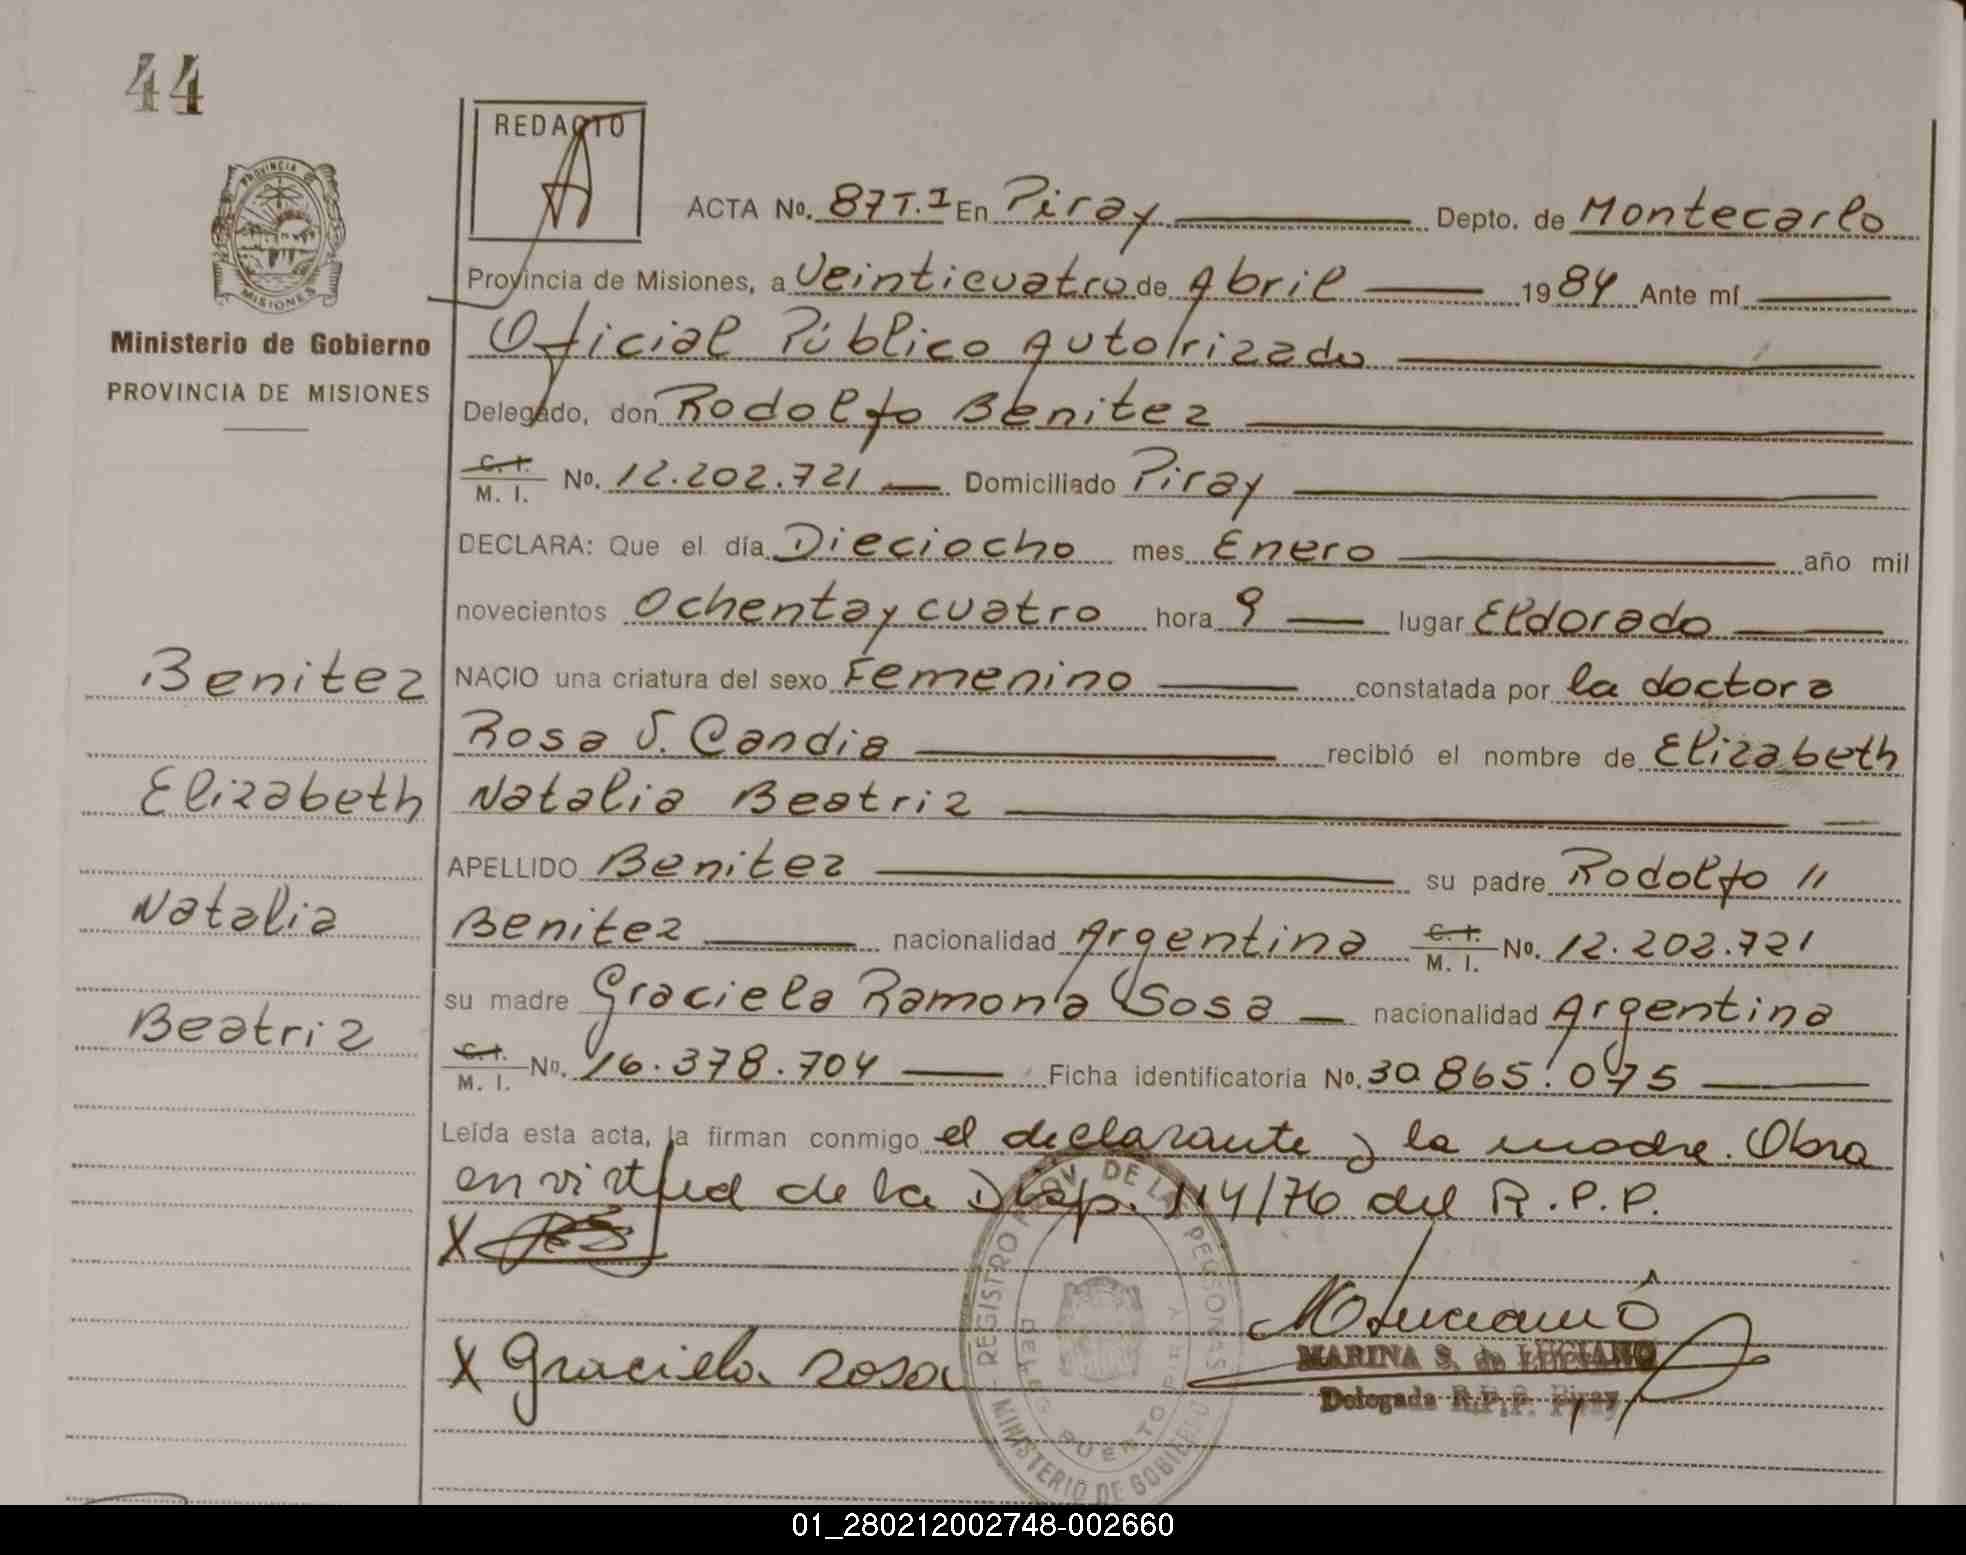 44
REDACTO
PROVINCIA
MISIONES
Ministerio de Gobierno
PROVINCIA DE MISIONES
ACTA No. 87 T.I En Piray Depto. de Montecarlo
Provincia de Misiones, a Veinticuatro de Abril 1984 Ante mí
Oficial Público Autorizado
Delegado, don Rodolfo Benitez
C. I.
M. I. No. 12.202.721 Domiciliado Piray
DECLARA: Que el día Dieciocho mes Enero año mil
novecientos Ochenta y cuatro hora 9 lugar Eldorado
NACIO una criatura del sexo Femenino constatada por la doctora
Rosa S. Candia recibió el nombre de Elizabeth
Natalia Beatriz
APELLIDO Benitez su padre Rodolfo //
Benitez nacionalidad Argentina C. I. M. I. No. 12.202.721
su madre Graciela Ramona Sosa nacionalidad Argentina
C. I.
M. I. No. 16.378.704 Ficha identificatoria No. 30.865.075
Leída esta acta, la firman conmigo el declarante y la madre. Obra
en virtud de la Disp. 114/76 del R.P.P.
X
X Graciela Sosa
MARINA S. de LUCIANO
Delegada R.P.P. Piray
REGISTRO PROV. DE LAS PERSONAS
MINISTERIO DE GOBIERNO
DELEG. PUERTO PIRAY
Benitez
Elizabeth
Natalia
Beatriz
01_280212002748-002660